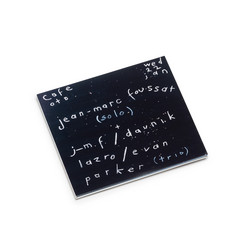 cafe
oto
wed
22
jan
jean-marc foussat
(solo.)
+
j-m.f/daunik
lazro/evan
parker (trio)